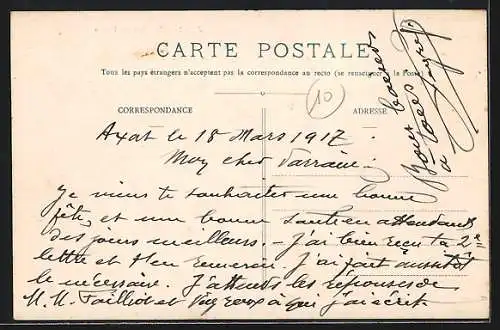 CARTE POSTALE
Tous les pays étrangers n'acceptent pas la correspondance au recto (se renseigner à la Poste)
10
CORRESPONDANCE
ADRESSE
Axat le 18 Mars 1917
Mon cher Parrain :
Je viens te souhaiter une bonne
fête, et une bonne santé en attendant
des jours meilleurs. - J'ai bien reçu ta 2e
lettre et t'en remercie. J'ai fait aussitôt
le nécessaire. J'attends les réponses de
M. M. et à qui j'ai écrit
Bons baisers
à tous